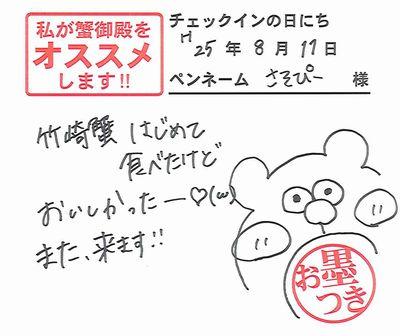 私が蟹御殿を
オススメ
します!!
チェックインの日にち
H25年8月17日
ペンネーム さそぴー 様
竹崎蟹 はじめて
食べたけど
おいしかったー♡(ω)
また、来ます!!
墨
おつき